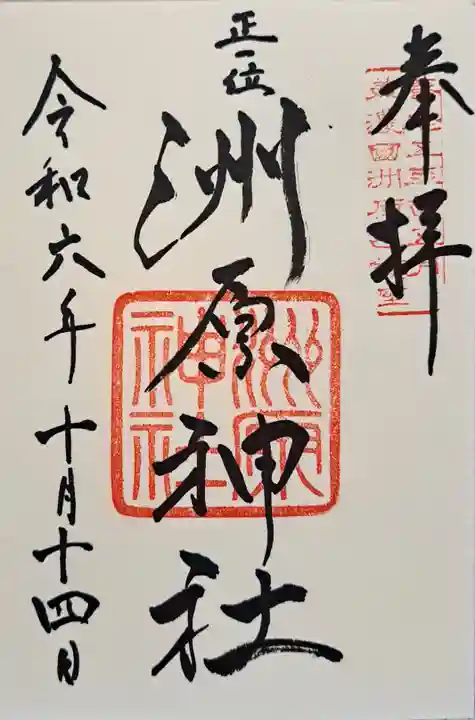 奉拝
正一位
洲原神社
洲原
神社
令和六年十月十四日